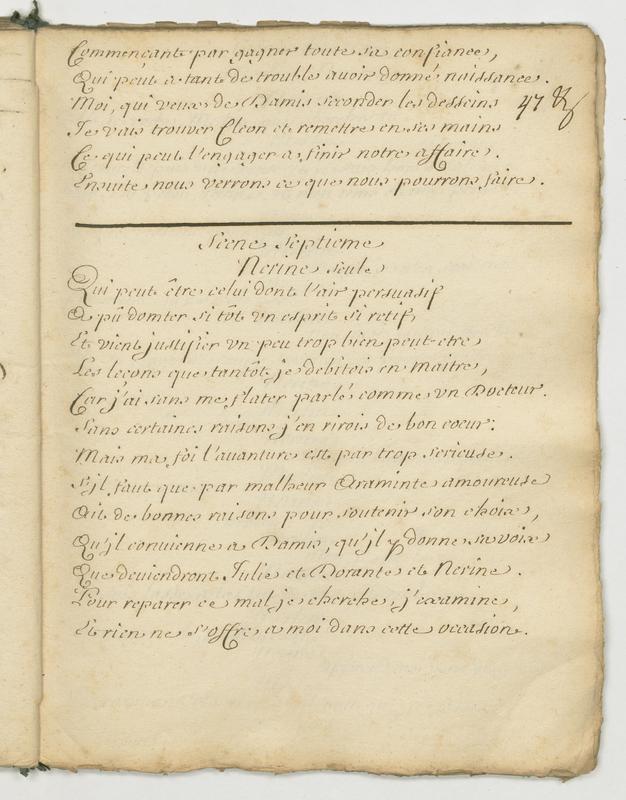 Commençant par gagner toute sa confiance,
Qui peut a tant de trouble avoir donné naissance.
Moi, qui veux de Damis seconder les desseins
47
Je vais trouver Cleon et remettre en ses mains
Ce qui peut l'engager a finir notre affaire.
Ensuite nous verrons ce que nous pourrons faire.
Scene Septieme
Nerine seule
Qui peut être celui dont l'air persuasif
A pû domter si tôt vn esprit si retif,
Et vient justifier vn peu trop bien peut-etre
Les lecons que tantôt je debitois en maitre,
Car j'ai sans me flater parlé comme vn Docteur.
Sans certaines raisons j'en rirois de bon coeur:
Mais ma foi l'auanture est par trop serieuse.
S'jl faut que par malheur Araminte amoureuse
Ait de bonnes raisons pour soutenir son choix,
Qu'jl convienne a Damis, qu'jl y donne sa voix
Que deviendront Julie et Dorante et Nerine.
Pour reparer ce mal je cherche, j'examine,
Et rien ne s'offre a moi dans cette occasion.